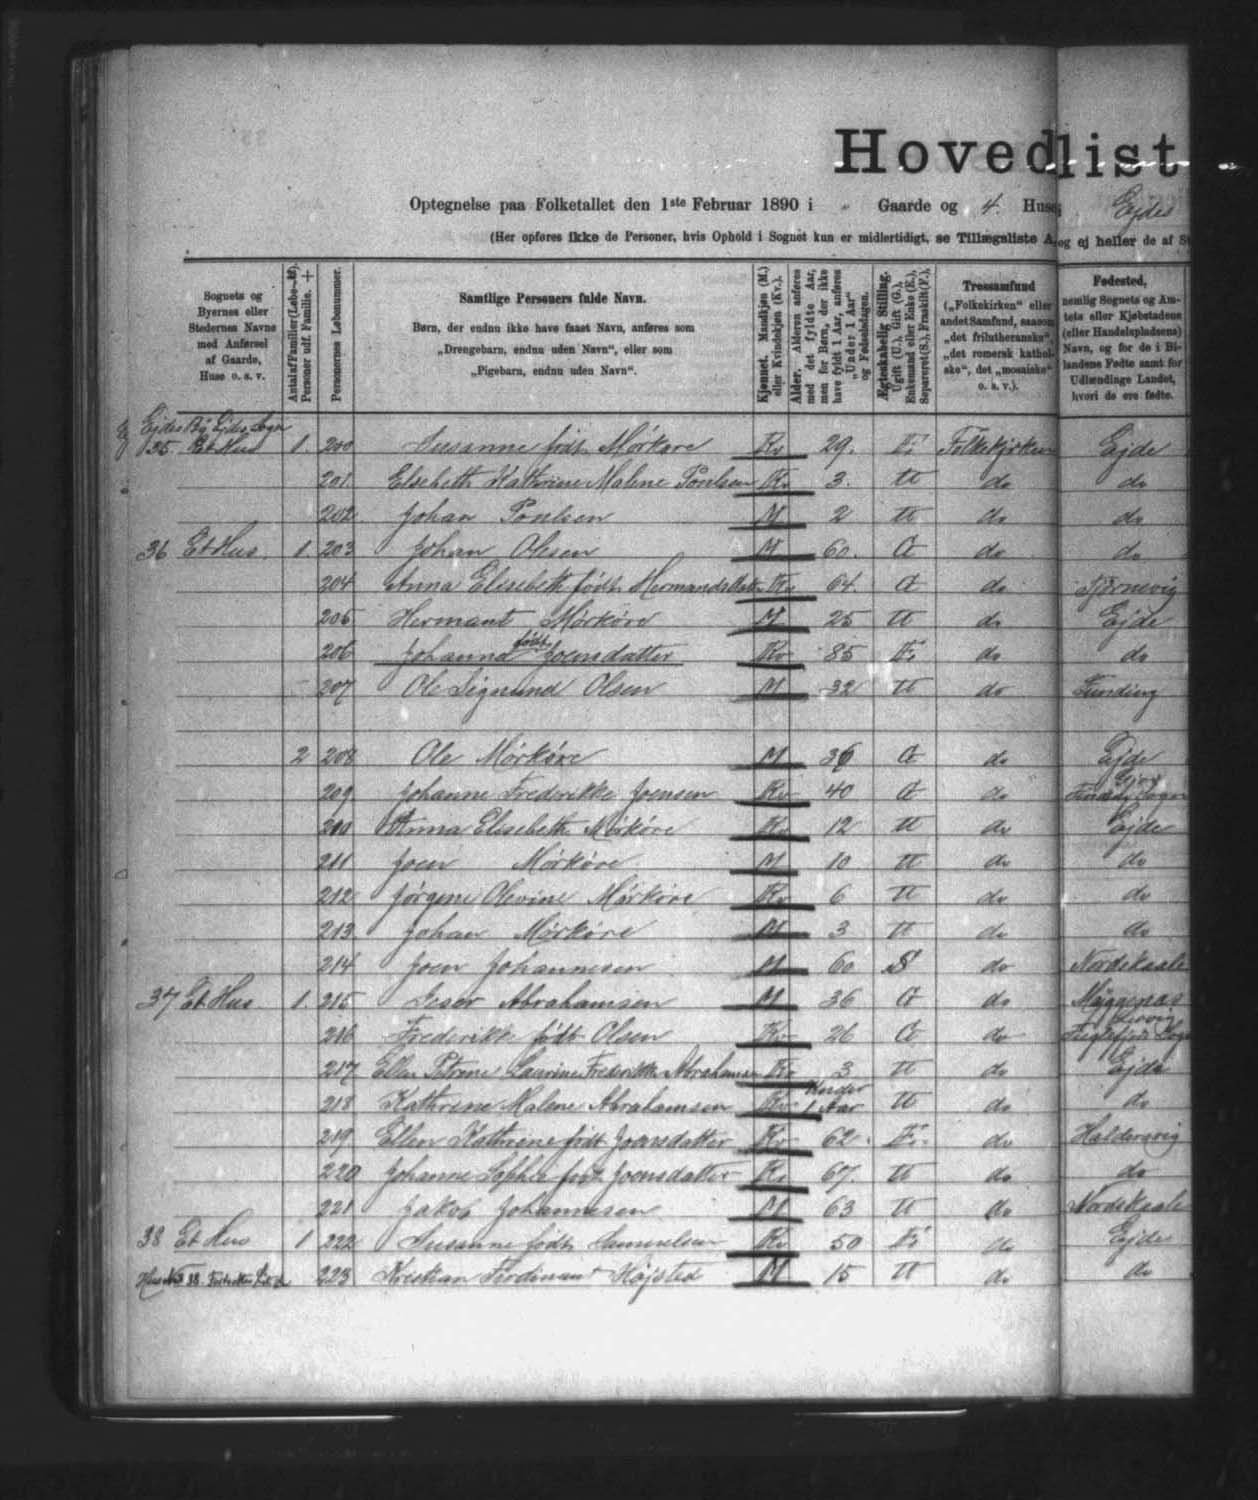 Hovedlist
Optegnelse paa Folketallet den 1ste Februar 1890 i " Gaarde og 4. Huse i Ejdes
(Her opføres ikke de Personer, hvis Ophold i Sognet kun er midlertidigt, se Tillægsliste A, og ej heller de af St
Sognets og Byernes eller Stedernes Navne med Anførsel af Gaarde, Huse o. s. v.
Antal af Familier (Løbe-№). Personer udf. Familie. +
Personernes Løbenummer.
Samtlige Personers fulde Navn.
Børn, der endnu ikke have faaet Navn, anføres som
„Drengebarn, endnu uden Navn", eller som
„Pigebarn, endnu uden Navn".
Kjønnet. Mandkjøn (M.) eller Kvindekjøn (Kv.).
Alder. Alderen anføres med det fyldte Aar, men for Børn, der ikke have fyldt 1 Aar, anføres „Under 1 Aar" og Fødselsdagen.
Ægteskabelig Stilling. Ugift (U.), Gift (G.), Enkemand eller Enke (E.), Separeret (S.), Fraskilt (F.).
Trossamfund („Folkekirken" eller andet Samfund, saasom „det frilutheranske", „det romersk katholske", det „mosaiske" o. s. v.).
Fødested, nemlig Sognets og Amtets eller Kjøbstadens (eller Handelspladsens) Navn, og for de i Bilandene Fødte samt for Udlændinge Landet, hvori de ere fødte.
Ejdes By Ejdes Sogn
35 Et Hus 1. 200 Susanne født Mørkøre Kv 29. E. Folkekjrken Ejde
201 Elsebeth Kathrine Malene Poulsen Kv 3. U do do
202 Johan Poulsen M 2 U do do
36 Et Hus. 1. 203 Johan Olesen M 60. G do do
204 Anna Elisebeth født Hermandsdatter Kv 64. G do Tjørnevig
205 Hermant Mørkøre M 25 U do Ejde
206 Johanna født Joensdatter Kv 85 E. do do
207 Ole Sigmund Olsen M 32 U do Funding
2 208 Ole Mørkøre M 36 G do Ejde
209 Johanne Frederikke Joensen Kv 40 G do Gjov Sogn
210 Anna Elisebeth Mørkøre Kv 12 U do Ejde
211 Joen Mørkøre M 10 U do do
212 Jørgine Olevine Mørkøre Kv 6 U do do
213 Johan Mørkøre M 3 U do do
214 Joen Johannesen M 60 S do Nordskaale
37 Et Hus. 1. 215 Abrahamsen M 36 G do Myggenæs
216 Frederikke født Olsen Kv 26 G do
217 Ellen Petrine Laurine Frederikke Abrahamsen Kv 3 U do Ejde
218 Kathrine Malene Abrahamsen Kv Under 1 Aar U do do
219 Ellen Kathrine født Joensdatter Kv 62. E. do Haldersvig
220 Johanne Sophia født Joensdatter Kv 67. U do do
221 Jakob Johannesen M 63 U do Nordskaale
38 Et Hus 1 222 Susanne født Samuelsen Kv 50 E. do Ejde
Hus № 38. 223 Kristian Ferdinant Højsted M 15 U do do